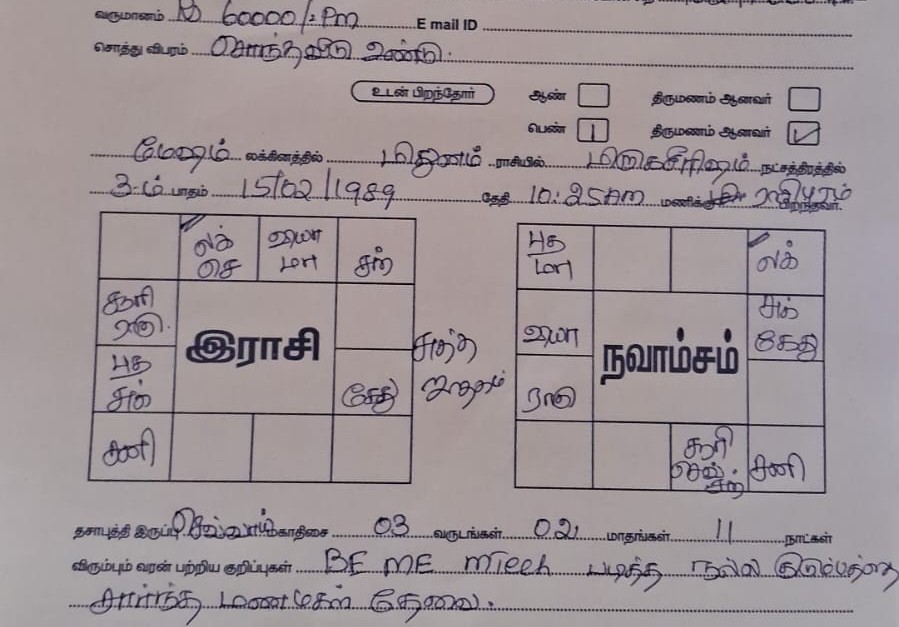 வருமானம் 60000/- PM E mail ID
சொத்து விபரம் சொந்தவீடு உண்டு.
உடன் பிறந்தோர் ஆண் திருமணம் ஆனவர்
பெண் 1 திருமணம் ஆனவர் ✓
மேஷம் லக்கினத்தில் மிதுனம் ராசியில் மிருகசீரிஷம் நட்சத்திரத்தில்
3-ம் பாதம் 15/02/1989 தேதி 10:25AM மணிக்கு பிறந்தவர்.
லக் செ வியா மா சந்
சூரி ராகு
இராசி
புத சுக் கேது
சனி
சுத்த ஜாதகம்
புத மா லக்
வியா சுக் கேது
நவாம்சம்
ராகு
சூரி செவ் சந் சனி
தசாபுத்தி இருப்பு செவ்வாய் மகாதிசை 03 வருடங்கள் 02 மாதங்கள் 11 நாட்கள்
விரும்பும் வரன் பற்றிய குறிப்புகள் BE ME MTech படித்த நல்ல
சார்ந்த மணமகன் தேவை.